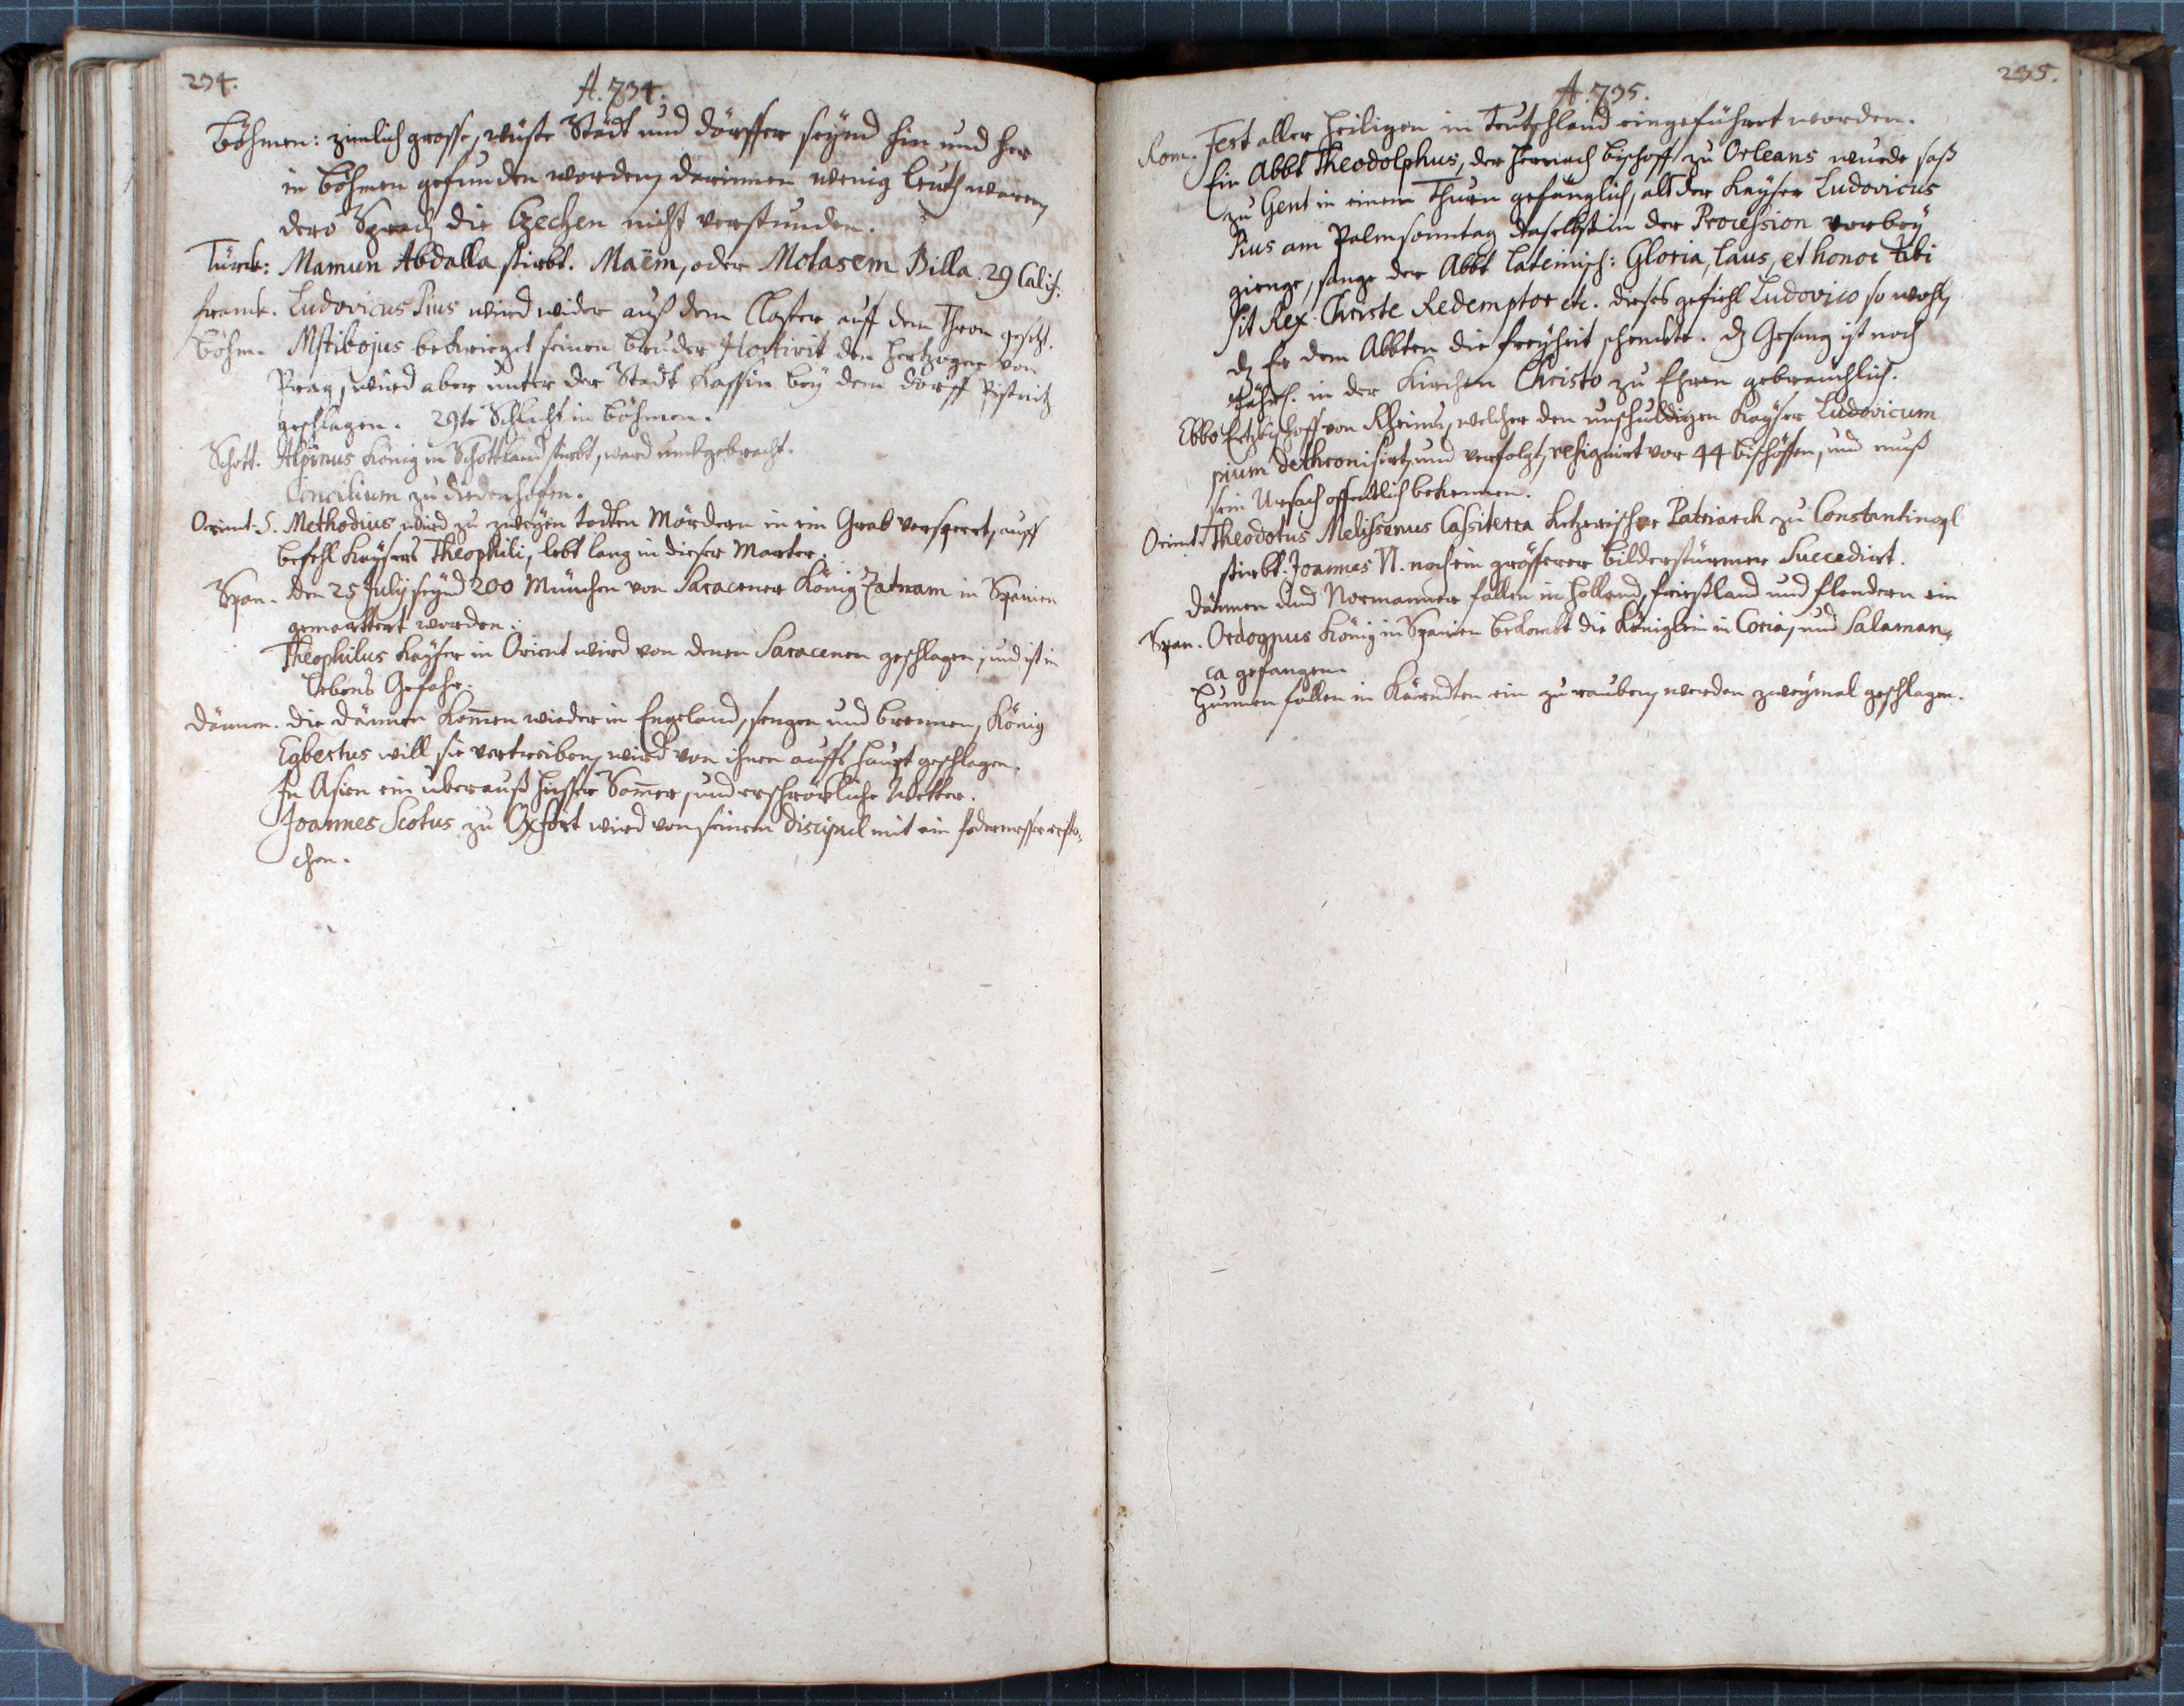 234.
A. 734.
Böhmen: zimlich grosse, wüste Städt und dörffer seynd hin und her
in Böhmen gefunden worden, darinnen wenig leuth waren,
dero Sprach die Czechen nicht verstunden.
Türck: Mamun Abdalla stirbt. Maëm, oder Motasem Billa. 29 Calif.
Franck. Ludovicus Pius wird wider auß dem Closter auff dem Thron gesetzt.
Böhm. Mstibojus bekrieget seinen bruder Hostivit den hertzogen von
Prag, wird aber unter der Stadt Kassin bey dem dorff Pistnitz
geschlagen. 29te Schlacht in Böhmen.
Schott. Alpinus König in Schottland stirbt, ward umbgebracht.
Concilium zu diedenhofen.
Orient. S. Methodius wird zu zweyen todten Mördern in ein Grab versperret, auff
befehl Kaysers Theophili, lebt lang in dieser Marter.
Span. den 25 Julij seynd 200 München von Saracener König Zatnam in Spanien
gemarttert worden.
Theophilus Kayser in Orient wird von denen Saracenen geschlagen, und ist in
lebens Gefahr.
Dännen. die Dännen kommen wieder in Engeland, sengen und brennen, König
Egbertus will sie vertreiben, wird von ihnen auffs haupt geschlagen.
In Asien ein uberauß heisser Sommer, und erschröckliche Wetter.
Joannes Scotus zu Oxfort wird von seinem discipul mit ein federmesser ersto-
chen.
235.
A. 735.
Rom. Fest aller heiligen in Teutschland eingeführet worden.
Ein Abbt Theodolphus, der hernach bischoff zu Orleans wurde saß
zu Gent in einem Thurn gefänglich, als der Kayser Ludovicus
Pius am Palmsonntag daselbst in der Procession vorbey
gienge, sange der Abbt lateinisch: Gloria, laus, et honor tibi
sit Rex Christe Redemptor etc. dieses gefiehl Ludovico so wohl,
dz Er dem Abbten die freyheit schenckte. dz Gesang ist noch
jährl. in der Kirchen Christo zu Ehren gebrauchlich.
Ebbo Ertzbischoff von Rheims, welcher den unschuldigen Kayser Ludovicum
pium dethronisirt, und verfolgt, resignirt vor 44 bischöffen, und muß
sein Ursach offentlich bekennen.
Orient. Theodotus Melissenus Cassiterra ketzerischer Patriarch zu Constantinopl
stirbt. Joannes VI. noch ein grösserer bilderstürmer Succedirt.
Dännen und Normanner fallen in holland, frießland und flandern ein
Span. Ordognus König in Spanien bekombt die Königlein in Coria, und Salaman-
ca gefangen.
Hunnen fallen in Kärndten ein zu rauben, werden zweymal geschlagen.